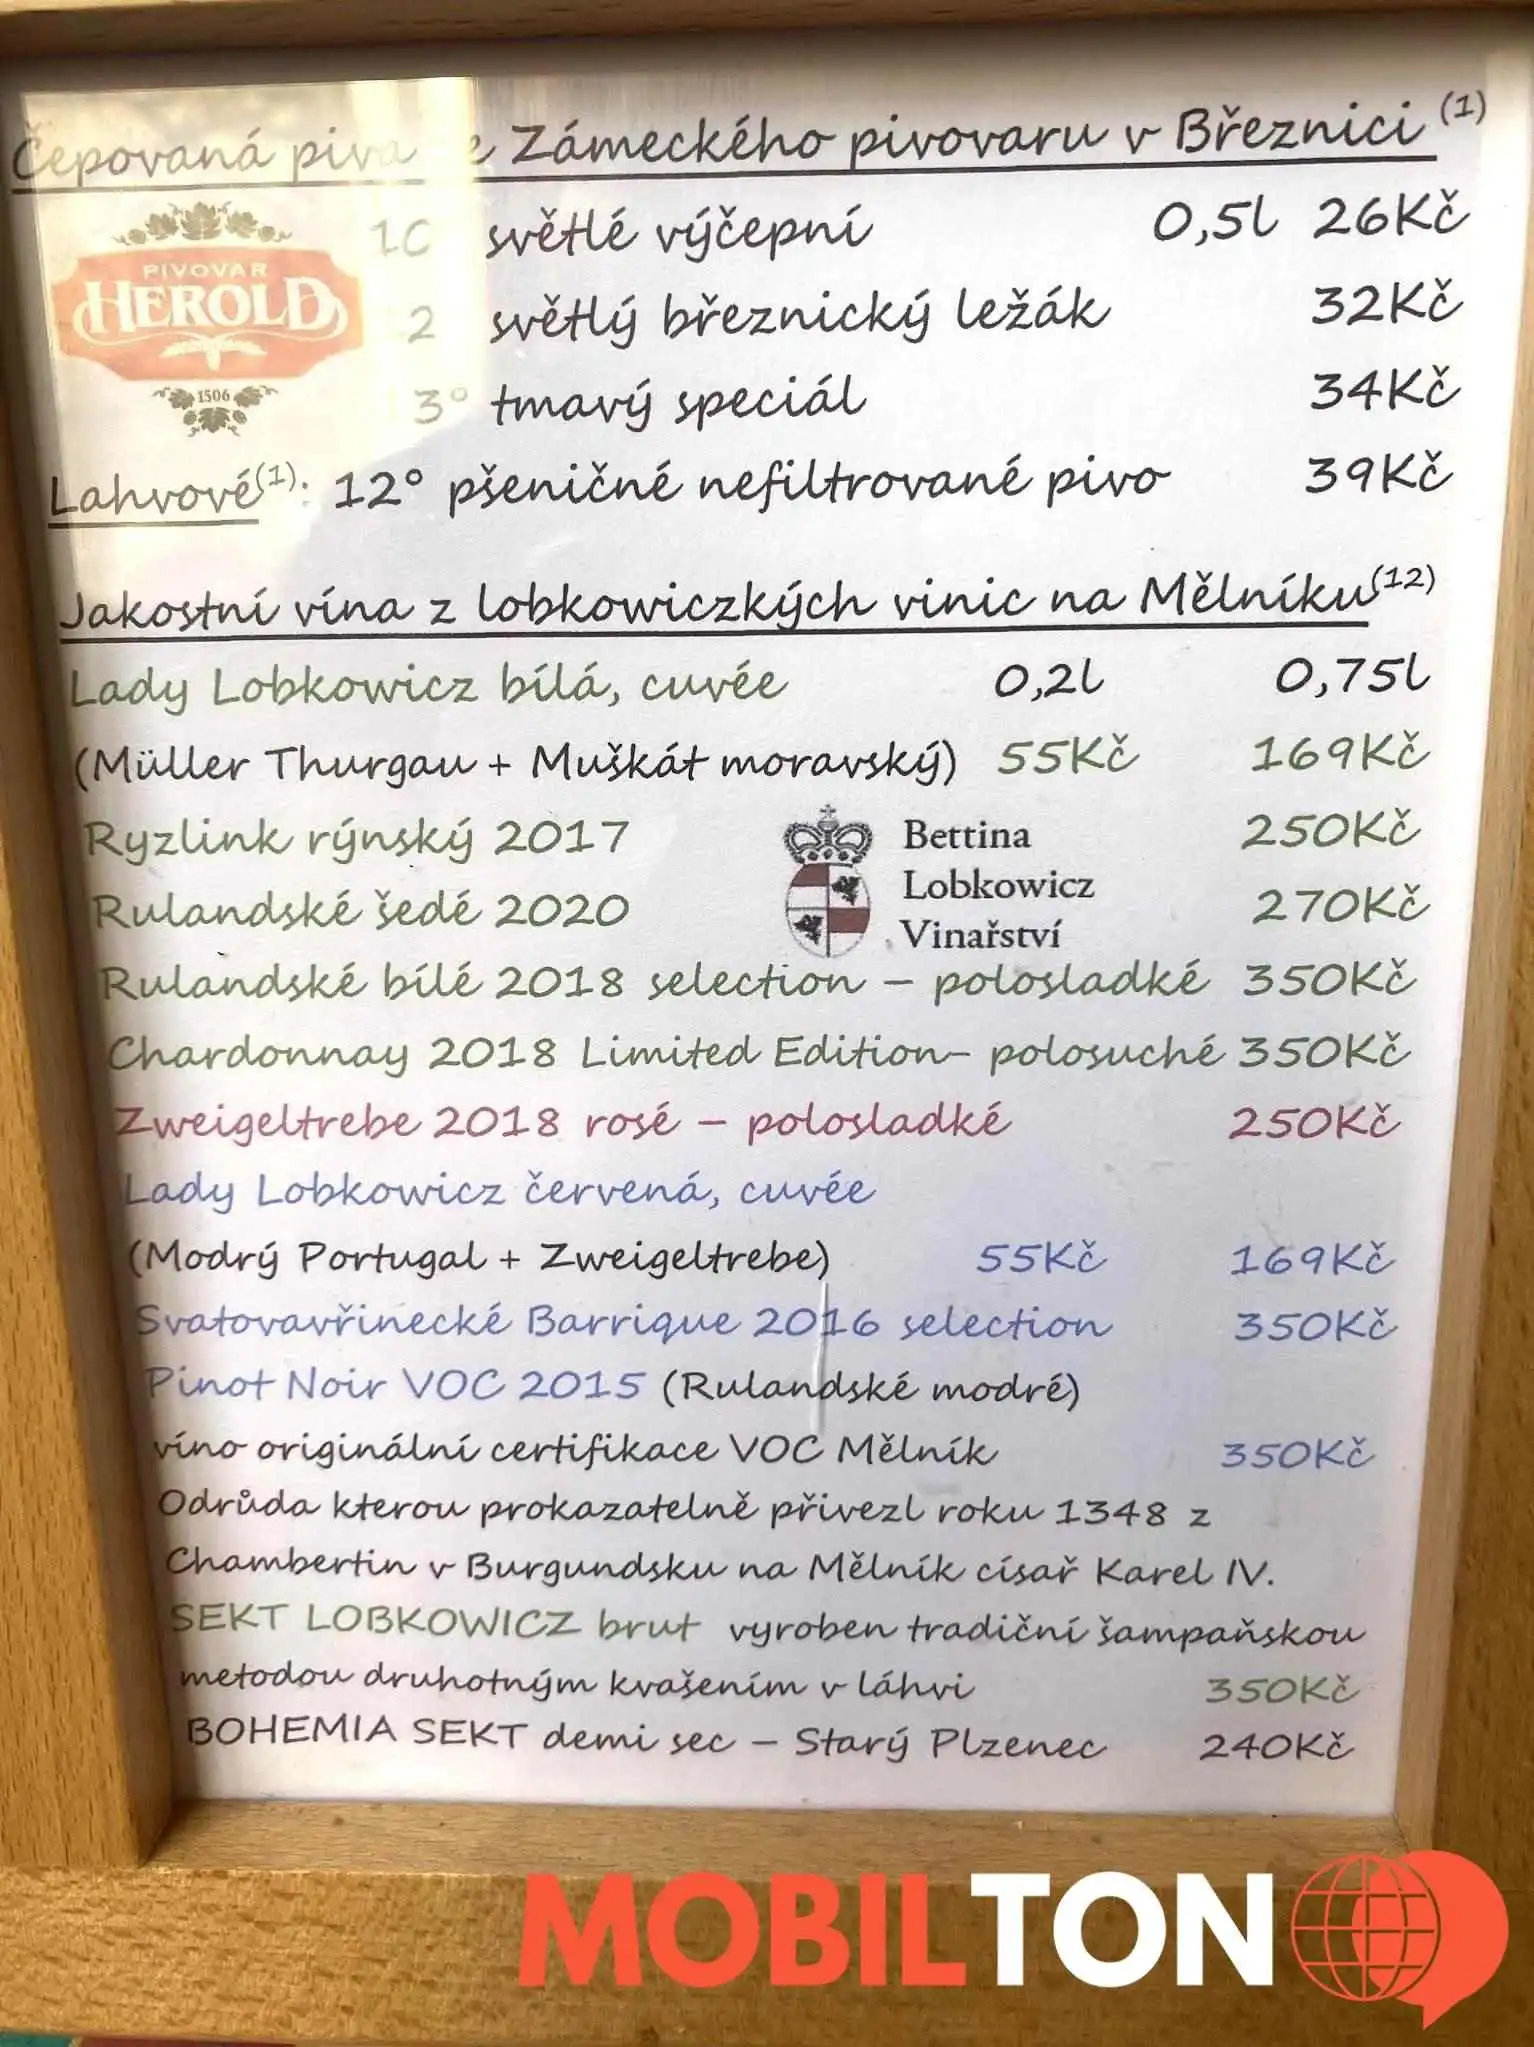 Čepovaná piva Zámeckého pivovaru v Březnici (1)
PIVOVAR
HEROLD
1506
10 světlé výčepní 0,5l 26Kč
2 světlý březnický ležák 32Kč
3° tmavý speciál 34Kč
Lahvové(1): 12° pšeničné nefiltrované pivo 39Kč
Jakostní vína z lobkowiczkých vinic na Mělníku(12)
Lady Lobkowicz bílá, cuvée 0,2l 0,75l
(Müller Thurgau + Muškát moravský) 55Kč 169Kč
Ryzlink rýnský 2017 250Kč
Bettina
Lobkowicz
Vinařství
Rulandské šedé 2020 270Kč
Rulandské bílé 2018 selection – polosladké 350Kč
Chardonnay 2018 Limited Edition– polosuché 350Kč
Zweigeltrebe 2018 rosé – polosladké 250Kč
Lady Lobkowicz červená, cuvée
(Modrý Portugal + Zweigeltrebe) 55Kč 169Kč
Svatovavřinecké Barrique 2016 selection 350Kč
Pinot Noir VOC 2015 (Rulandské modré)
víno originální certifikace VOC Mělník 350Kč
Odrůda kterou prokazatelně přivezl roku 1348 z
Chambertin v Burgundsku na Mělník císař Karel IV.
SEKT LOBKOWICZ brut vyroben tradiční šampaňskou
metodou druhotným kvašením v láhvi 350Kč
BOHEMIA SEKT demi sec – Starý Plzenec 240Kč
MOBILTON